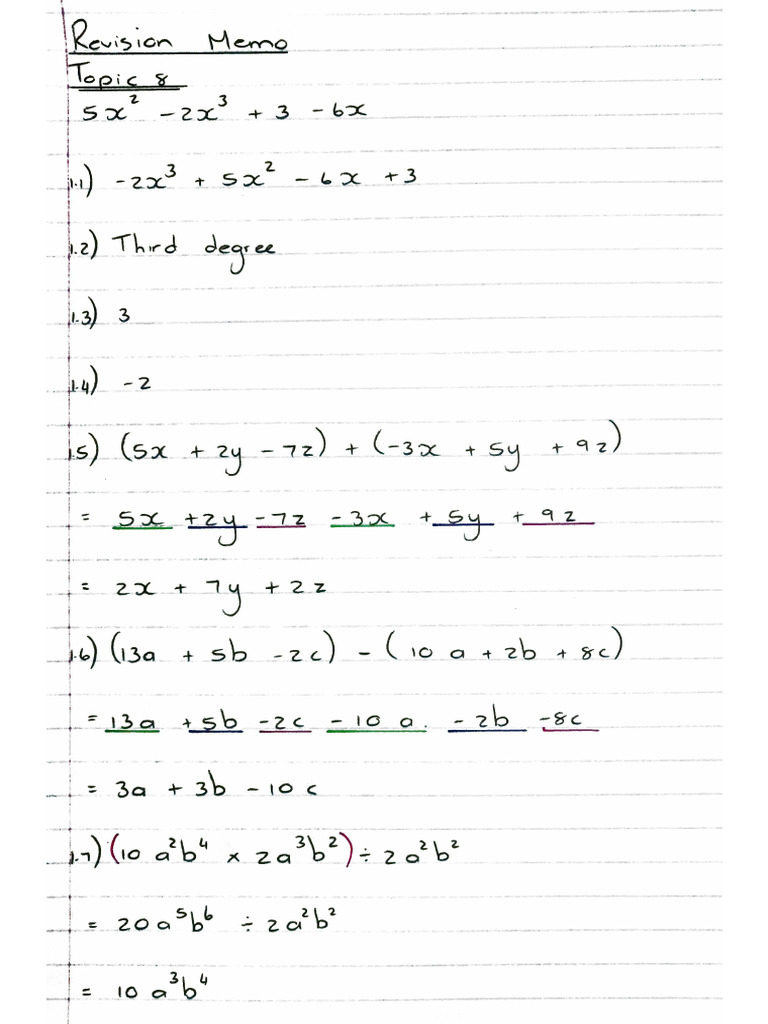 Revision Memo
Topic 8
5x² - 2x³ + 3 - 6x
1.1) -2x³ + 5x² - 6x + 3
1.2) Third degree
1.3) 3
1.4) -2
1.5) (5x + 2y - 7z) + (-3x + 5y + 9z)
= 5x + 2y - 7z - 3x + 5y + 9z
= 2x + 7y + 2z
1.6) (13a + 5b - 2c) - (10a + 2b + 8c)
= 13a + 5b - 2c - 10a. - 2b - 8c
= 3a + 3b - 10c
1.7) (10a²b⁴ × 2a³b²) ÷ 2a²b²
= 20a⁵b⁶ ÷ 2a²b²
= 10a³b⁴